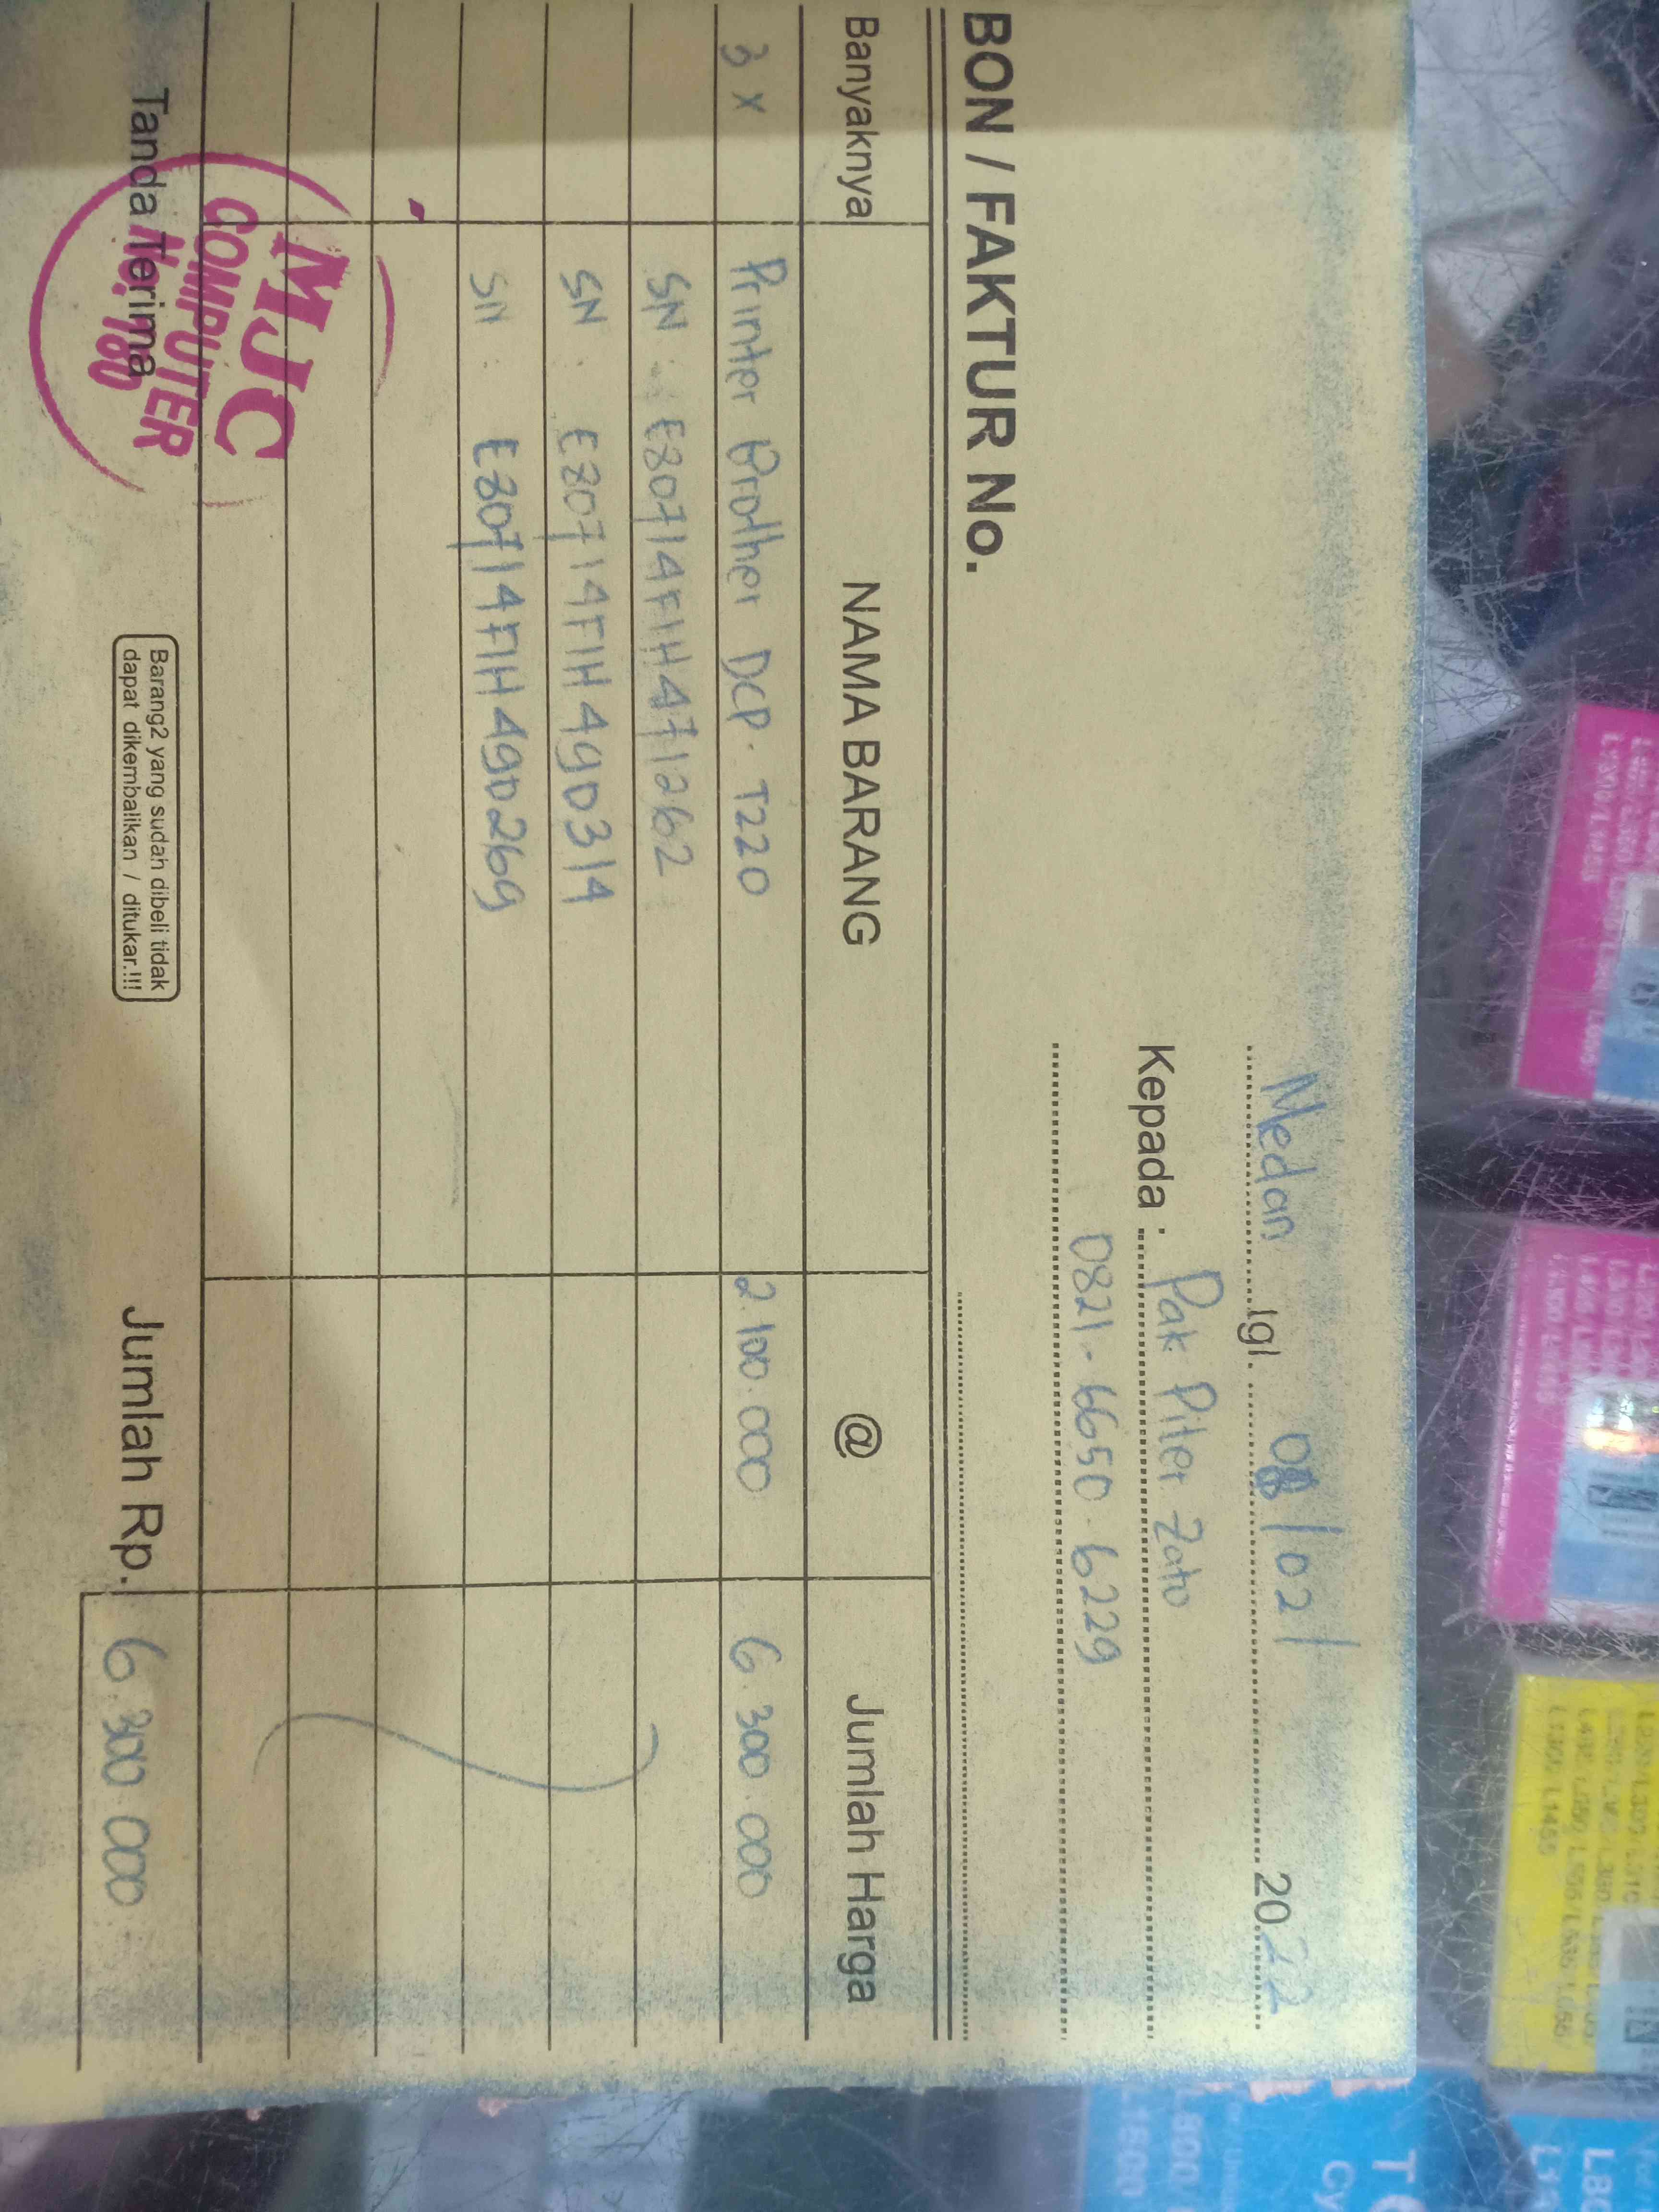 Medan Tgl. 08/02/ 2022
Kepada : Pak Piter Zato
0821-6650-6229
BON / FAKTUR No.
Banyaknya NAMA BARANG @ Jumlah Harga
3 x Printer Brother DCP-T220 2.100.000 6.300.000
SN : E80714F1H471262
SN : E80714F1H490314
SN : E80714F1H490269
MJC
COMPUTER
No. 180
Tanda Terima
Barang2 yang sudah dibeli tidak
dapat dikembalikan / ditukar.!!!
Jumlah Rp. 6.300.000